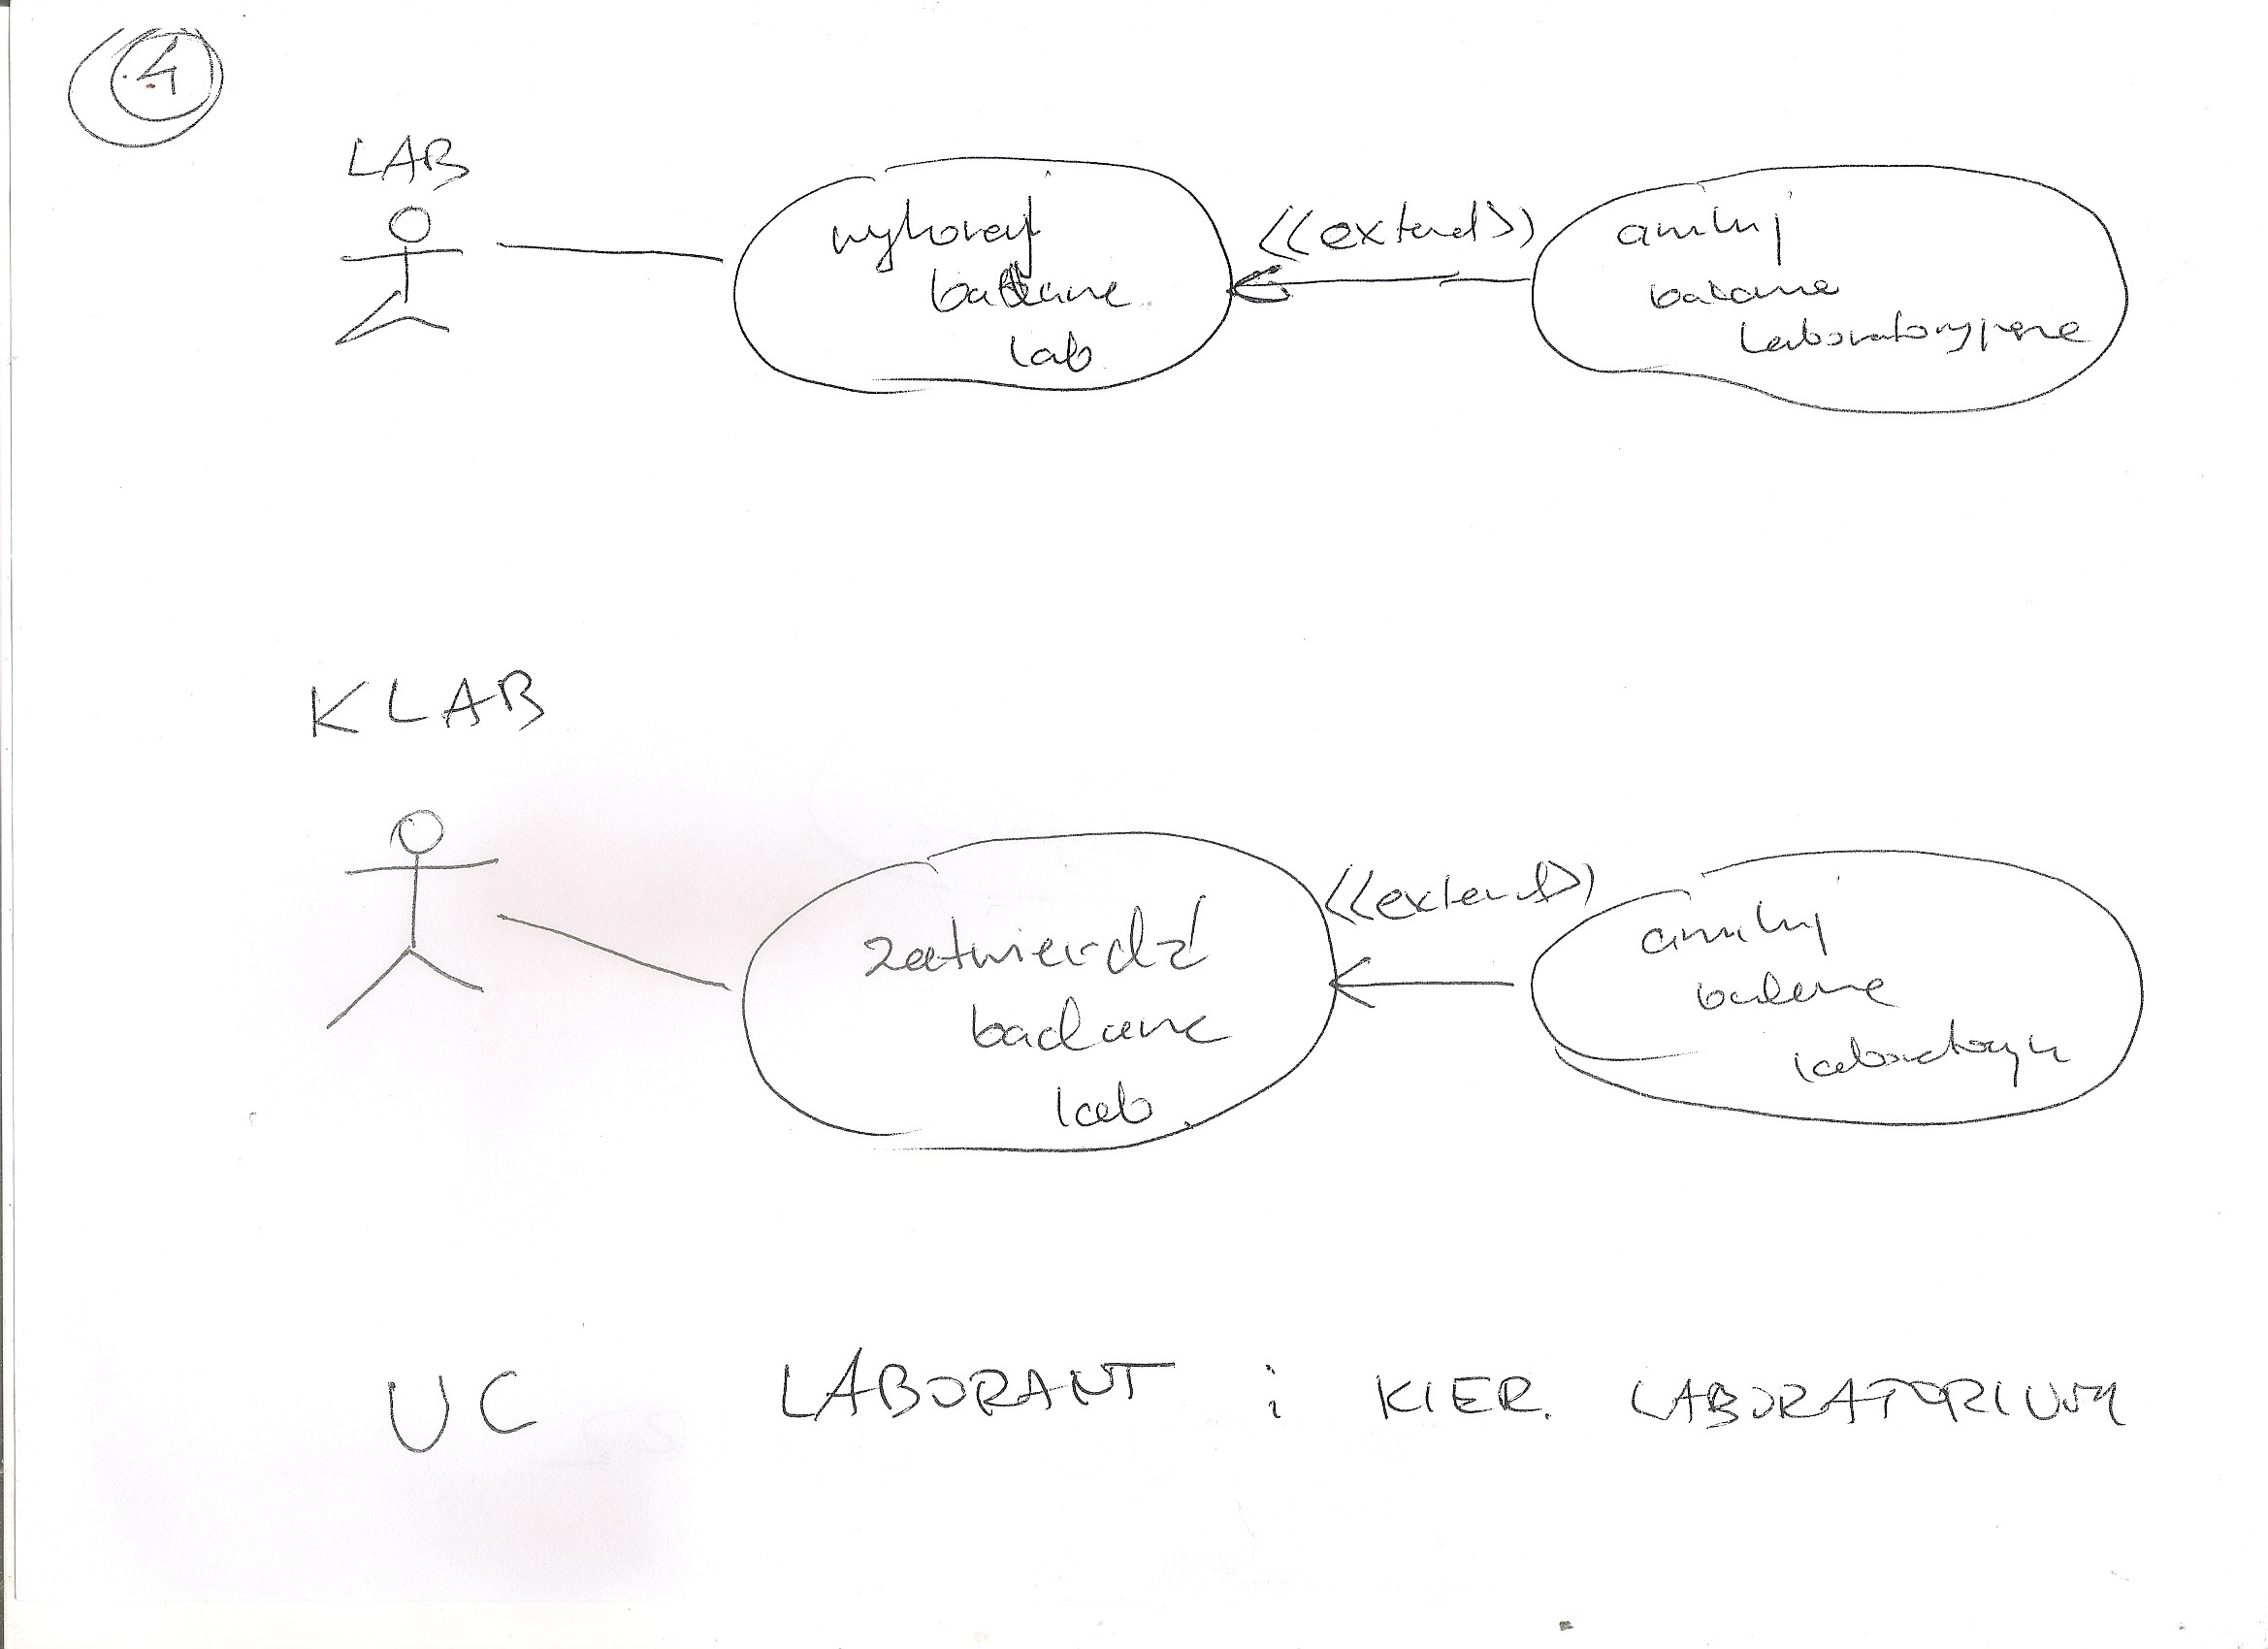 4
LAB
wykonaj
badanie
lab
<<extend>>
anuluj
badanie
laboratoryjne
KLAB
zatwierdź
badanie
lab
<<extend>>
anuluj
badanie
laboratoryjn
UC LABORANT i KIER. LABORATORIUM